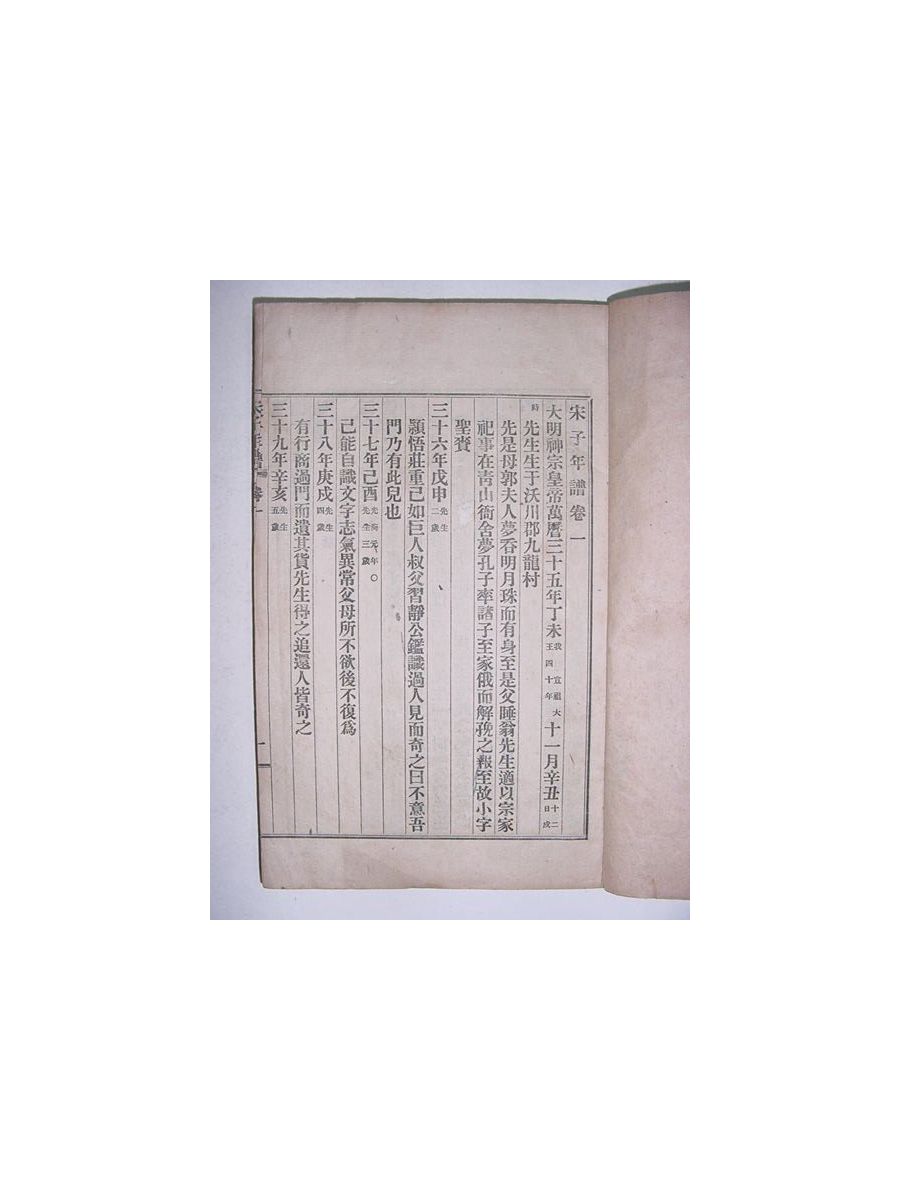 宋子年譜卷一
大明神宗皇帝萬曆三十五年丁未我宣祖大王四十年十一月辛丑十二日戌
時先生生于沃川郡九龍村
先是母郭夫人夢吞明月珠而有身至是父睡翁先生適以宗家
祀事在靑山衙舍夢孔子率諸子至家俄而解娩之報至故小字
聖賚
三十六年戊申先生二歲
穎悟莊重已如巨人叔父習靜公鑑識過人見而奇之曰不意吾
門乃有此兒也
三十七年己酉光海元年○先生三歲
已能自識文字志氣異常父母所不欲後不復爲
三十八年庚戌先生四歲
有行商過門而遺其貨先生得之追還人皆奇之
三十九年辛亥先生五歲
宋子年譜 卷一 一